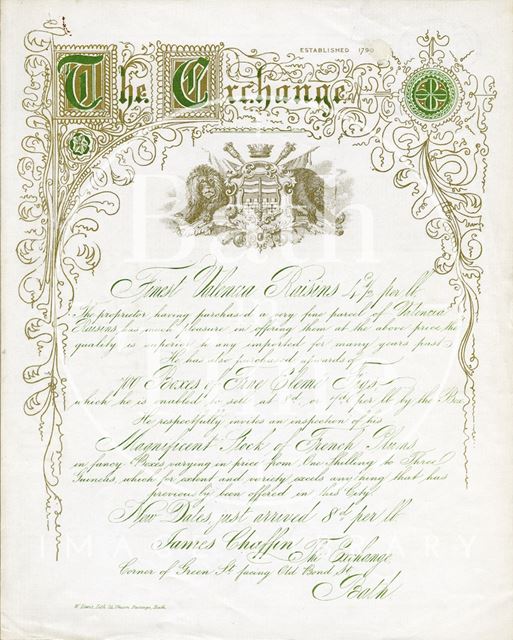 ESTABLISHED 1790
The Exchange
Finest Valencia Raisins per lb
The proprietor having purchased a very fine parcel of Valencia
Raisins, has much pleasure in offering them at the above price, the
quality is superior to any imported for many years past.
He has also purchased upwards of
700 Boxes of Fine Elemé Figs
which he is enabled to sell at 8d. or 7½d per lb by the Box
He respectfully invites an inspection of his
Magnificent Stock of French Plums
in fancy Boxes varying in price from One Shilling to Three
Guineas, which for extent and variety excels anything that has
previously been offered in this City.
New Dates just arrived 8d per lb
James Chaffin
The Exchange
Corner of Green St facing Old Bond St
Bath
Bath
in Time
IMAGE LIBRARY